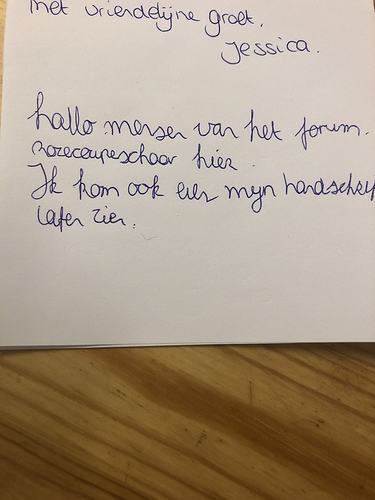 Met vriendelijne groet,
Jessica.
hallo mensen van het forum.
Rozecoureschaar hier.
Ik kom ook even mijn handschrif
laten zien.